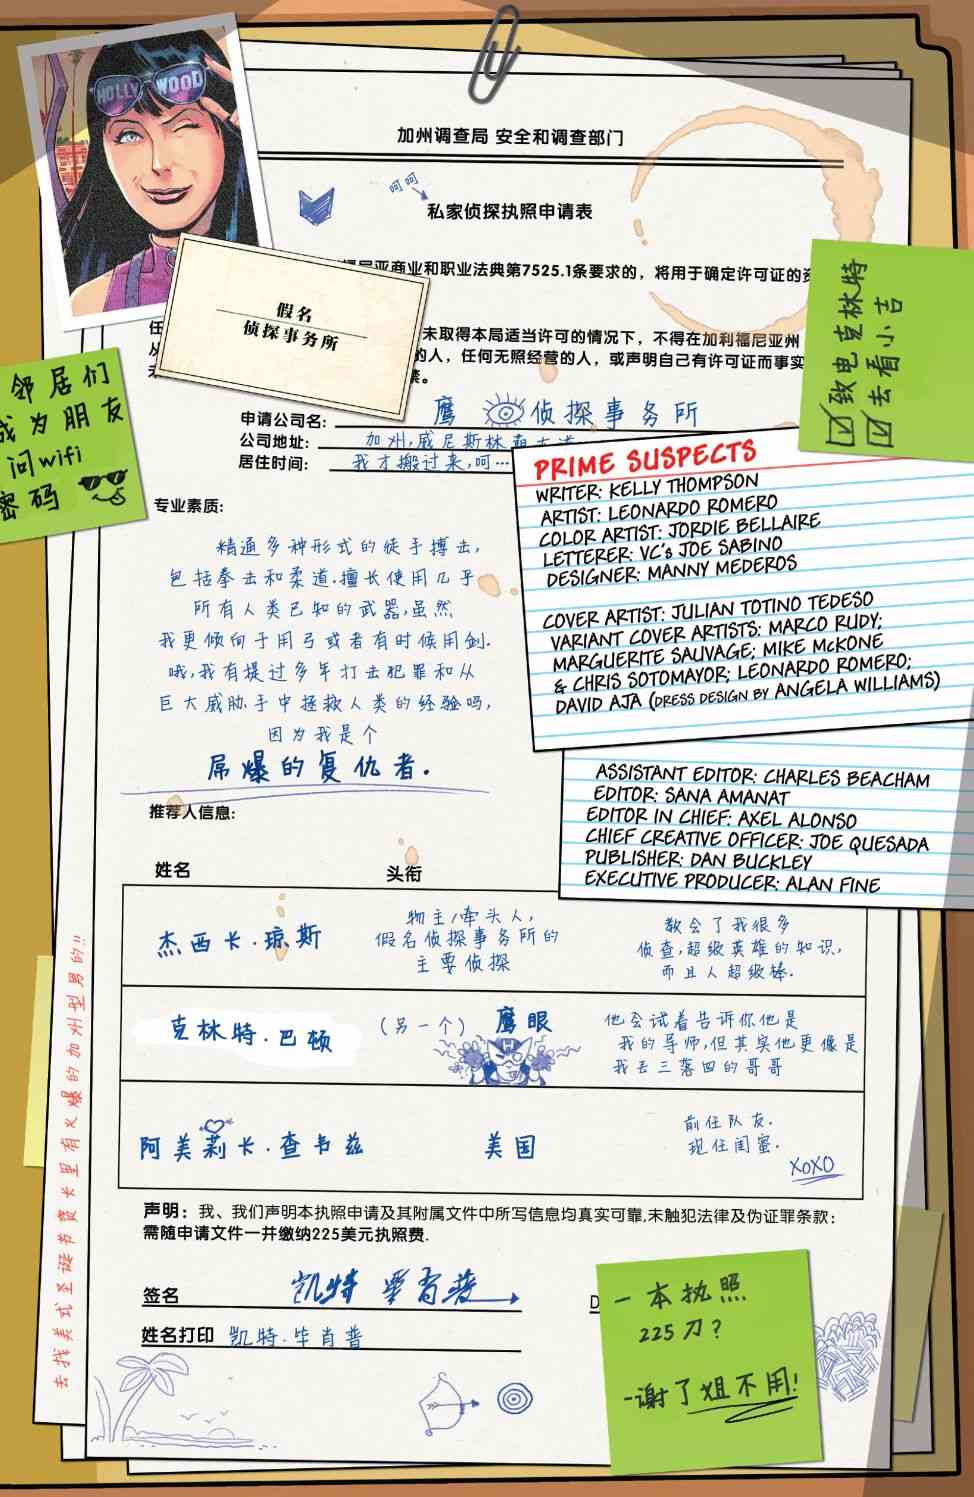 HOLLY WOOD
加州调查局 安全和调查部门
呵呵
私家侦探执照申请表
尼亚商业和职业法典第7525.1条要求的，将用于确定许可证的资
未取得本局适当许可的情况下，不得在加利福尼亚州
的人，任何无照经营的人，或声明自己有许可证而事实
假名
侦探事务所
致电克林特
去看小吉
邻居们
成为朋友
问wifi
密码
申请公司名: 鹰 侦探事务所
公司地址: 加州,威尼斯林荫大道
居住时间: 我才搬过来,呵…
PRIME SUSPECTS
WRITER: KELLY THOMPSON
ARTIST: LEONARDO ROMERO
COLOR ARTIST: JORDIE BELLAIRE
LETTERER: VC's JOE SABINO
DESIGNER: MANNY MEDEROS
COVER ARTIST: JULIAN TOTINO TEDESO
VARIANT COVER ARTISTS: MARCO RUDY;
MARGUERITE SAUVAGE; MIKE McKONE
& CHRIS SOTOMAYOR; LEONARDO ROMERO;
DAVID AJA (DRESS DESIGN BY ANGELA WILLIAMS)
ASSISTANT EDITOR: CHARLES BEACHAM
EDITOR: SANA AMANAT
EDITOR IN CHIEF: AXEL ALONSO
CHIEF CREATIVE OFFICER: JOE QUESADA
PUBLISHER: DAN BUCKLEY
EXECUTIVE PRODUCER: ALAN FINE
专业素质:
精通多种形式的徒手搏击,
包括拳击和柔道.擅长使用几乎
所有人类已知的武器,虽然
我更倾向于用弓或者有时候用剑.
哦,我有提过多年打击犯罪和从
巨大威胁手中拯救人类的经验吗,
因为我是个
屌爆的复仇者.
推荐人信息:
姓名 头衔
杰西卡·琼斯
物主/牵头人,
假名侦探事务所的
主要侦探
教会了我很多
侦查,超级英雄的知识,
而且人超级棒.
克林特.巴顿
(另一个) 鹰眼
H
他会试着告诉你他是
我的导师,但其实他更像是
我丢三落四的哥哥
阿美莉卡·查韦兹
美国
前任队友.
现任闺蜜.
XOXO
声明：我、我们声明本执照申请及其附属文件中所写信息均真实可靠,未触犯法律及伪证罪条款;
需随申请文件一并缴纳225美元执照费.
签名 凯特 毕肖普
姓名打印 凯特·毕肖普
D
一本执照
225刀?
-谢了姐不用!
去找美式圣诞节贺卡里有火爆的加州型男的!!